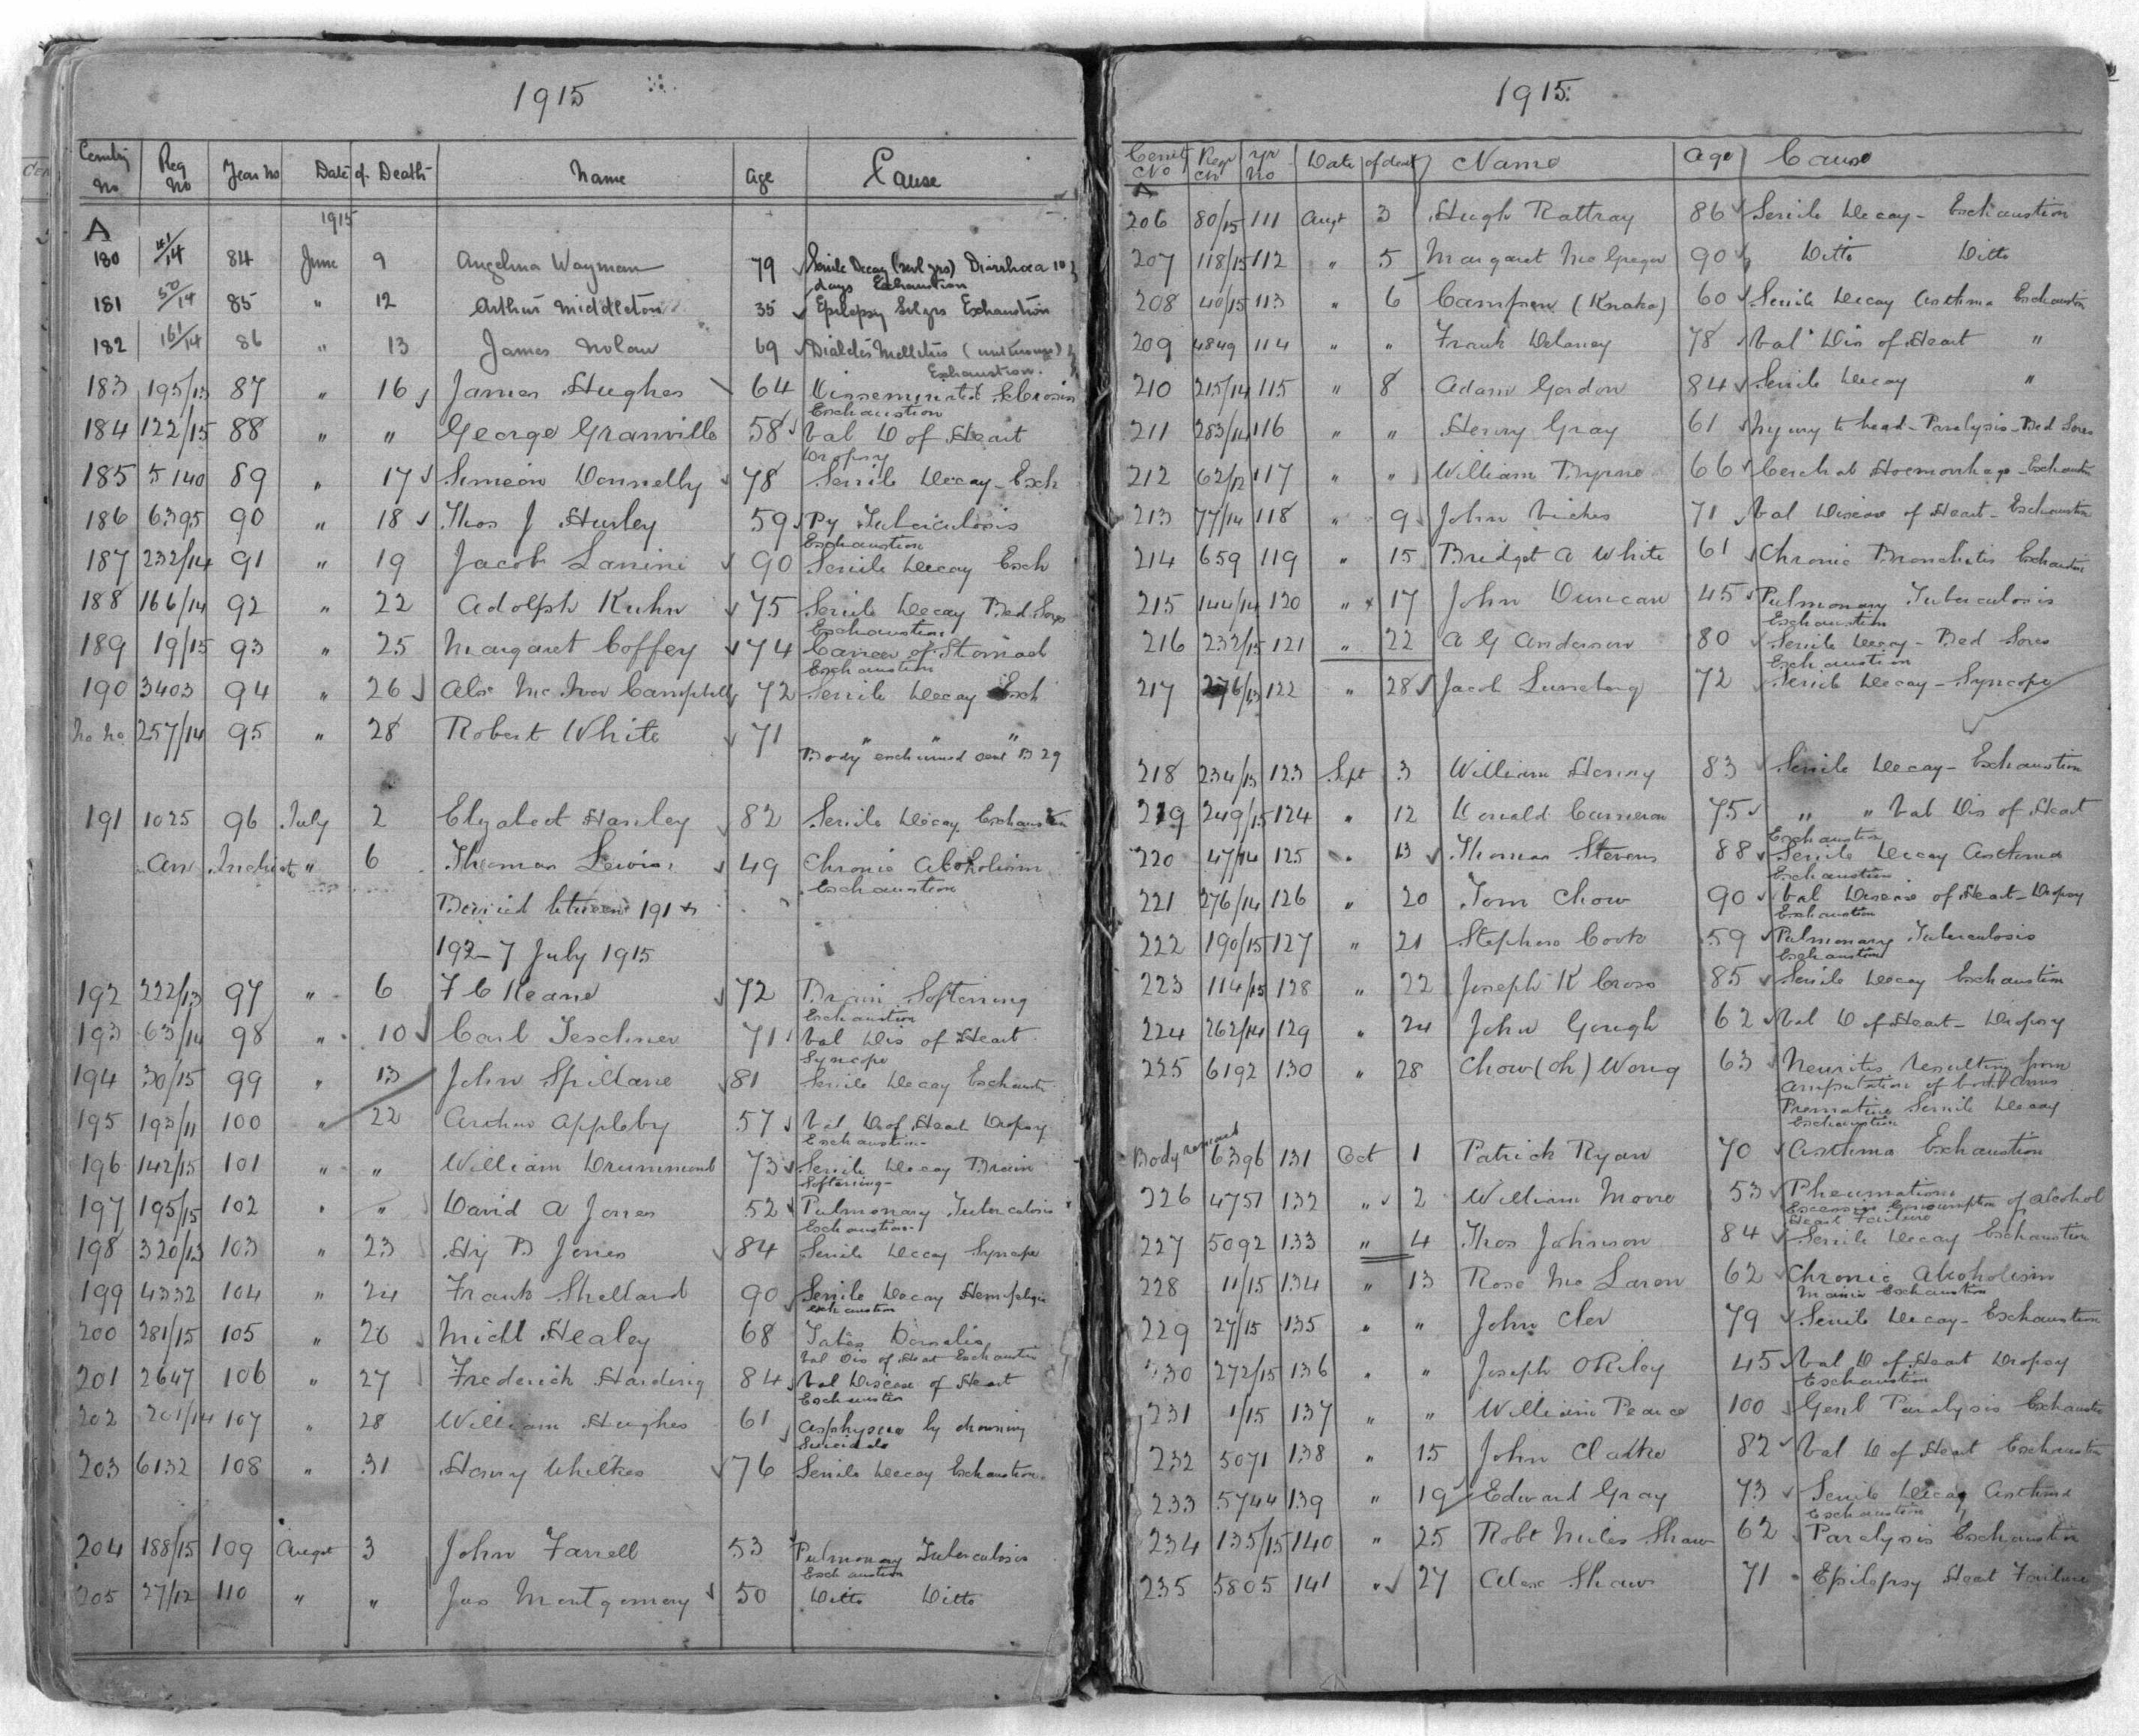 1915
Cemtry No Reg No Year No Date of Death Name Age Cause
A 1915
180 41/14 84 June 9 Angelina Wayman 79 Senile Decay (sevl yrs) Diarrhoea 10
days Exhaustion
181 50/14 85 " 12 Arthur Middleton 35 Epilepsy Sevl yrs Exhaustion
182 161/14 86 " 13 James Nolan 69 Diabetes Mellitus
Exhaustion.
183 195/13 87 " 16 James Hughes 64 Disseminated Sclerosis
Exhaustion
184 122/15 88 " " George Granville 58 Val D of Heart
Dropsy
185 5140 89 " 17 Simeon Donnelly 78 Senile Decay - Exh
186 6395 90 " 18 Thos J Hurley 59 Py Tuberculosis
Exhaustion
187 232/14 91 " 19 Jacob Lanini 90 Senile Decay Exh
188 166/14 92 " 22 Adolph Kuhn 75 Senile Decay Bed Sores
Exhaustion
189 19/15 93 " 25 Margaret Coffey 74 Cancer of Stomach
Exhaustion
190 3403 94 " 26 Alex McIvor Campbell 72 Senile Decay Exh
No No 257/14 95 " 28 Robert White 71 " " "
Body exhumed see B 29
191 1025 96 July 2 Elizabeth Hanley 82 Senile Decay Exhaustion
An Indigent " 6 Thomas Lewis 49 Chronic Alcoholism
Exhaustion
Buried between 191 &
192 - 7 July 1915
192 222/13 97 " 6 F C Keane 72 Brain Softening
Exhaustion
193 63/14 98 " 10 Carl Teschner 71 Val Dis of Heart
Syncope
194 30/15 99 " 13 John Spillane 81 Senile Decay Exhaustn
195 193/11 100 " 22 Arthur Appleby 57 Val D of Heart Dropsy
Exhaustion -
196 142/15 101 " " William Drummond 73 Senile Decay Brain
Softening -
197 195/15 102 " " David A Jones 52 Pulmonary Tuberculosis
Exhaustion
198 320/13 103 " 23 Hy B Jones 84 Senile Decay Syncope
199 4332 104 " 24 Frank Shelland 90 Senile Decay Hemiplegia
exhaustion
200 281/15 105 " 26 Michl Healey 68 Tabes Dorsalis
Val Dis of Heart Exhaustn
201 2647 106 " 27 Frederick Harding 84 Val Disease of Heart
Exhaustion
202 201/14 107 " 28 William Hughes 61 Asphyxia by drowning
Suicide
203 6132 108 " 31 Harry Whelkes 76 Senile Decay Exhaustion.
204 188/15 109 Augst 3 John Farrell 53 Pulmonary Tuberculosis
Exhaustion
205 27/12 110 " " Jas Montgomery 50 Ditto Ditto
1915
Cemt No Regr No yr No Date of death Name Age Cause
A
206 80/15 111 Augt 3 Hugh Rattray 86 Senile Decay - Exhaustion
207 118/15 112 " 5 Margaret McGregor 90 Ditto Ditto
208 40/15 113 " 6 (Knaka) 60 Senile Decay Asthma Exhaustn
209 4849 114 " " Frank Delaney 78 Val Dis of Heart "
210 215/14 115 " 8 Adam Gordon 84 Senile Decay "
211 283/14 116 " " Henry Gray 61 Injury to head - Paralysis - Bed Sores
212 62/12 117 " " William Byrne 66 Cerebral Hoemorrhage - Exhaustn
213 77/14 118 " 9 John Viches 71 Val Disease of Heart - Exhaustn
214 659 119 " 15 Bridget A White 61 Chronic Bronchitis Exhaustn
215 144/14 120 " 17 John Duncan 45 Pulmonary Tuberculosis
Exhaustion
216 232/15 121 " 22 A G Anderson 80 Senile Decay - Bed Sores
Exhaustion
217 276/13 122 " 28 Jacob Luneborg 72 Senile Decay - Syncope
218 234/13 123 Sept 3 William Henry 83 Senile Decay - Exhaustion
219 249/15 124 " 12 Donald Cameron 75 " " Val Dis of Heart
Exhaustn
220 47/14 125 " 13 Thomas Stevens 88 Senile Decay Asthma
Exhaustion
221 276/14 126 " 20 Tom Chow 90 Val Disease of Heart - Dropsy
Exhaustion
222 190/15 127 " 21 Stephen Cook 59 Pulmonary Tuberculosis
Exhaustion
223 114/15 128 " 22 Joseph K Cross 85 Senile Decay Exhaustion
224 262/14 129 " 24 John Gough 62 Val D of Heart - Dropsy
225 6192 130 " 28 Chow (Oh) Wong 63 Neuritis resulting from
amputation of both arms
Premature Senile Decay
Exhaustion
Body removed 6396 131 Oct 1 Patrick Ryan 70 Asthma Exhaustion
226 4751 132 " 2 William Moore 53 Rheumatism
Excessive Consumption of alcohol
Heart Failure
227 5092 133 " 4 Thos Johnson 84 Senile Decay Exhaustion
228 11/15 134 " 13 Rose McLaren 62 Chronic Alcoholism
Mania Exhaustion
229 27/15 135 " " John Cler 79 Senile Decay - Exhaustion
230 272/15 136 " " Joseph ORiley 45 Val D of Heart Dropsy
Exhaustion
231 1/15 137 " " William Pearce 100 Genl Paralysis Exhaustn
232 5071 138 " 15 John Clarke 82 Val D of Heart Exhaustn
233 5744 139 " 19 Edward Gray 73 Senile Decay Asthma
Exhaustion
234 135/15 140 " 25 Robt Miles Shaw 62 Paralysis Exhaustion
235 5805 141 " 27 Alex Shaw 71 Epilepsy Heart Failure